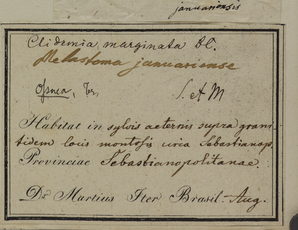 januariensis
Clidemia marginata DC.
Melastoma januariense
Osnea, Tr. S. et M
Habitat in sylvis aeternis supra grani
tidem locis montosis circa Sebastianop.
Provinciae Sebastianopolitanae.
Dr Martius Iter Brasil. Aug.